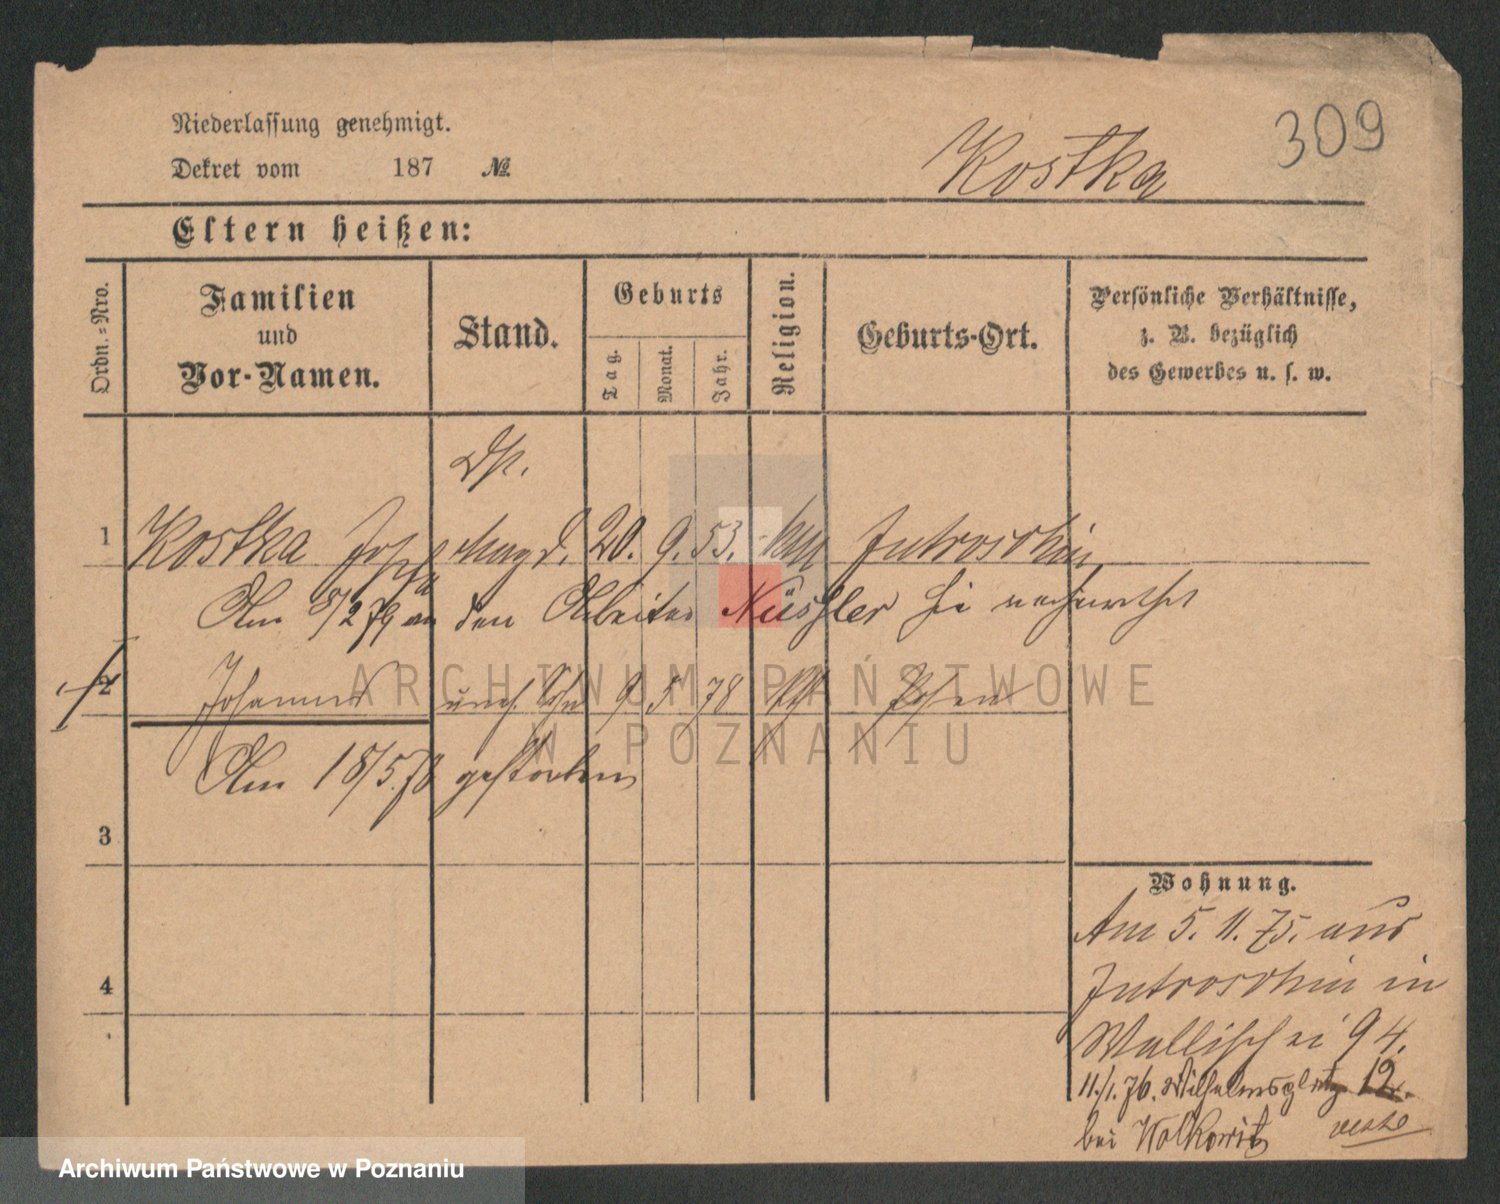 309
Niederlassung genehmigt.
Dekret vom 187 №
Kostka
Eltern heißen:
Ordn.-Nro.
Familien
und
Vor-Namen.
Stand.
Geburts
Tag.
Monat.
Jahr.
Religion.
Geburts-Ort.
Persönliche Verhältnisse,
z. B. bezüglich
des Gewerbes u. s. w.
1 Kostka Josepha Magd. 20. 9. 53. Jutroschin
Am 8/2 79 an den Arbeiter Nüssler verheirathet
2 Johannes Sohn 9 5 78 Posen
Am 18/5.78 gestorben
3
4
Wohnung.
Am 5. 11. 75. aus
Jutroschin in
Wallischei 94.
11./1. 76. Wilhelmsplatz 12.
bei Wolkowitz
ARCHIWUM PAŃSTWOWE
W POZNANIU
Archiwum Państwowe w Poznaniu